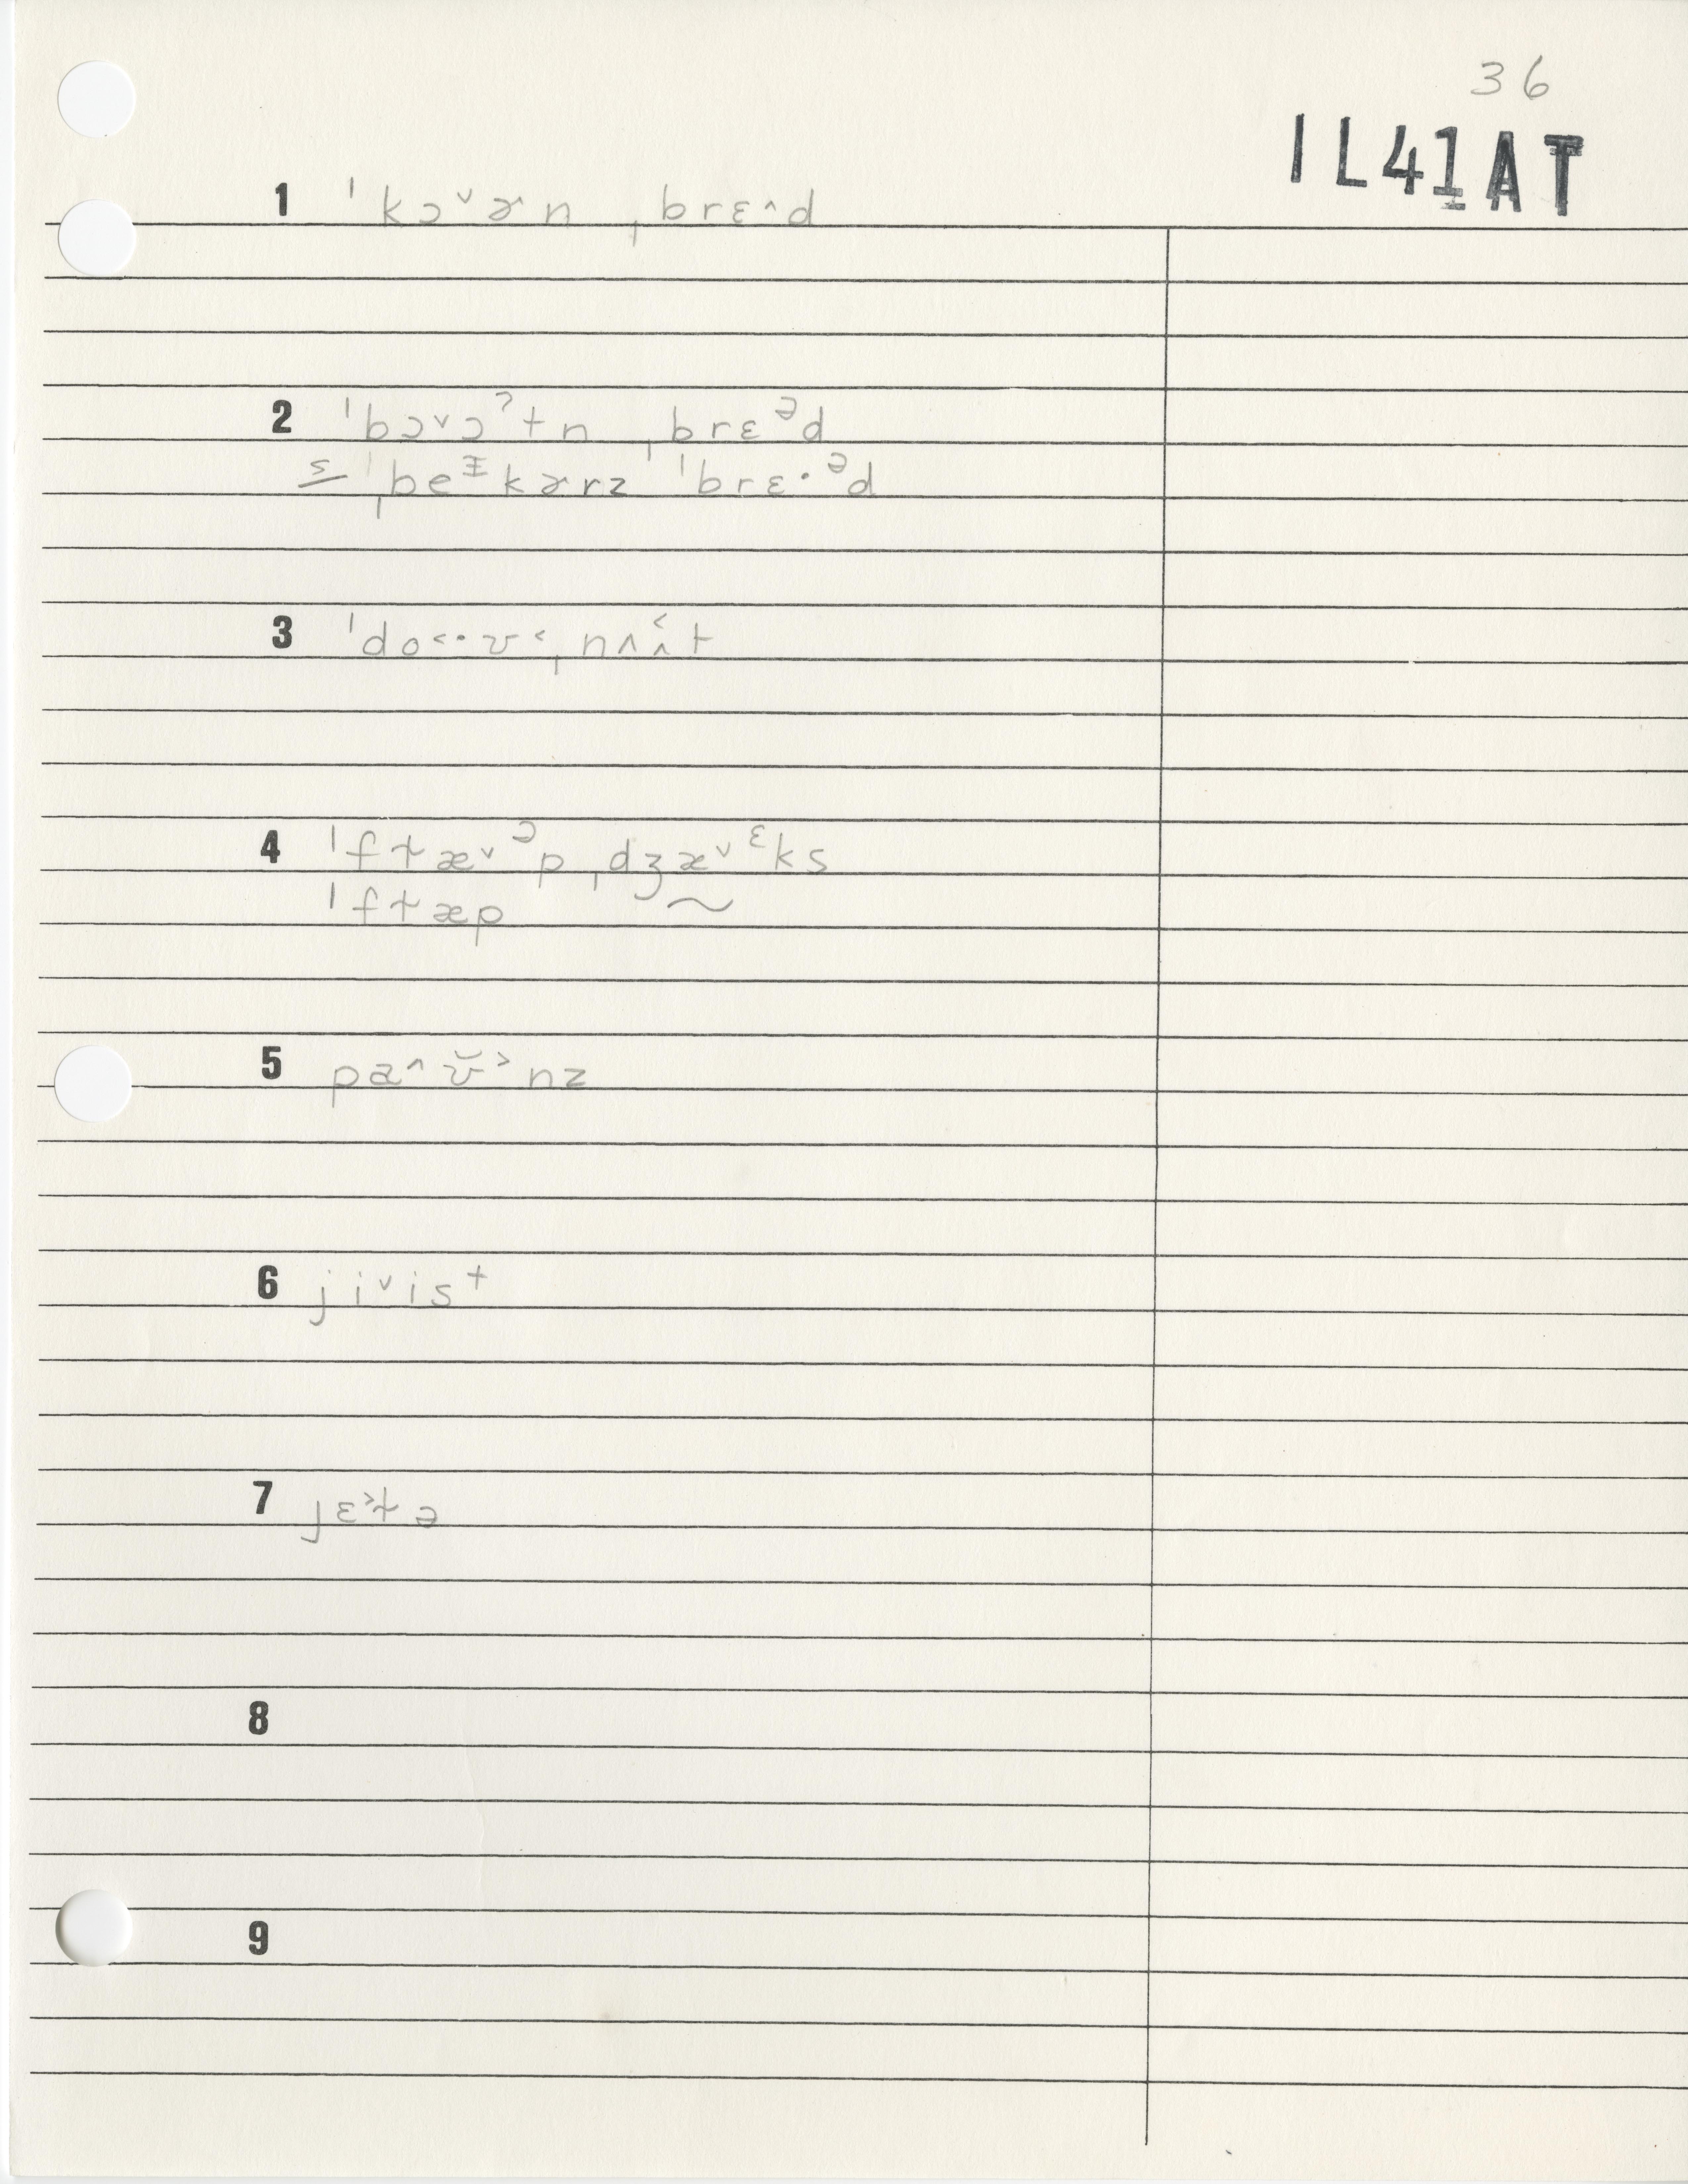 36
1L41AT
1 ˈkɔ˅ɚn ˌbrɛ˄d
2 ˈbɔ˅ɔˀtn ˌbrɛᵊd
s/ ˌbeᶦkɚrz ˈbrɛ·ᵊd
3 ˈdo˂·ʊ˂ˌnʌʌ̂t
4 ˈfɫæ˅ᵓpˌdʒæ˅ᵋks
ˈfɫæp ~
5 pa˄ʊ̆˃nz
6 ji˅ist
7 jɛ˃ɫə
8
9